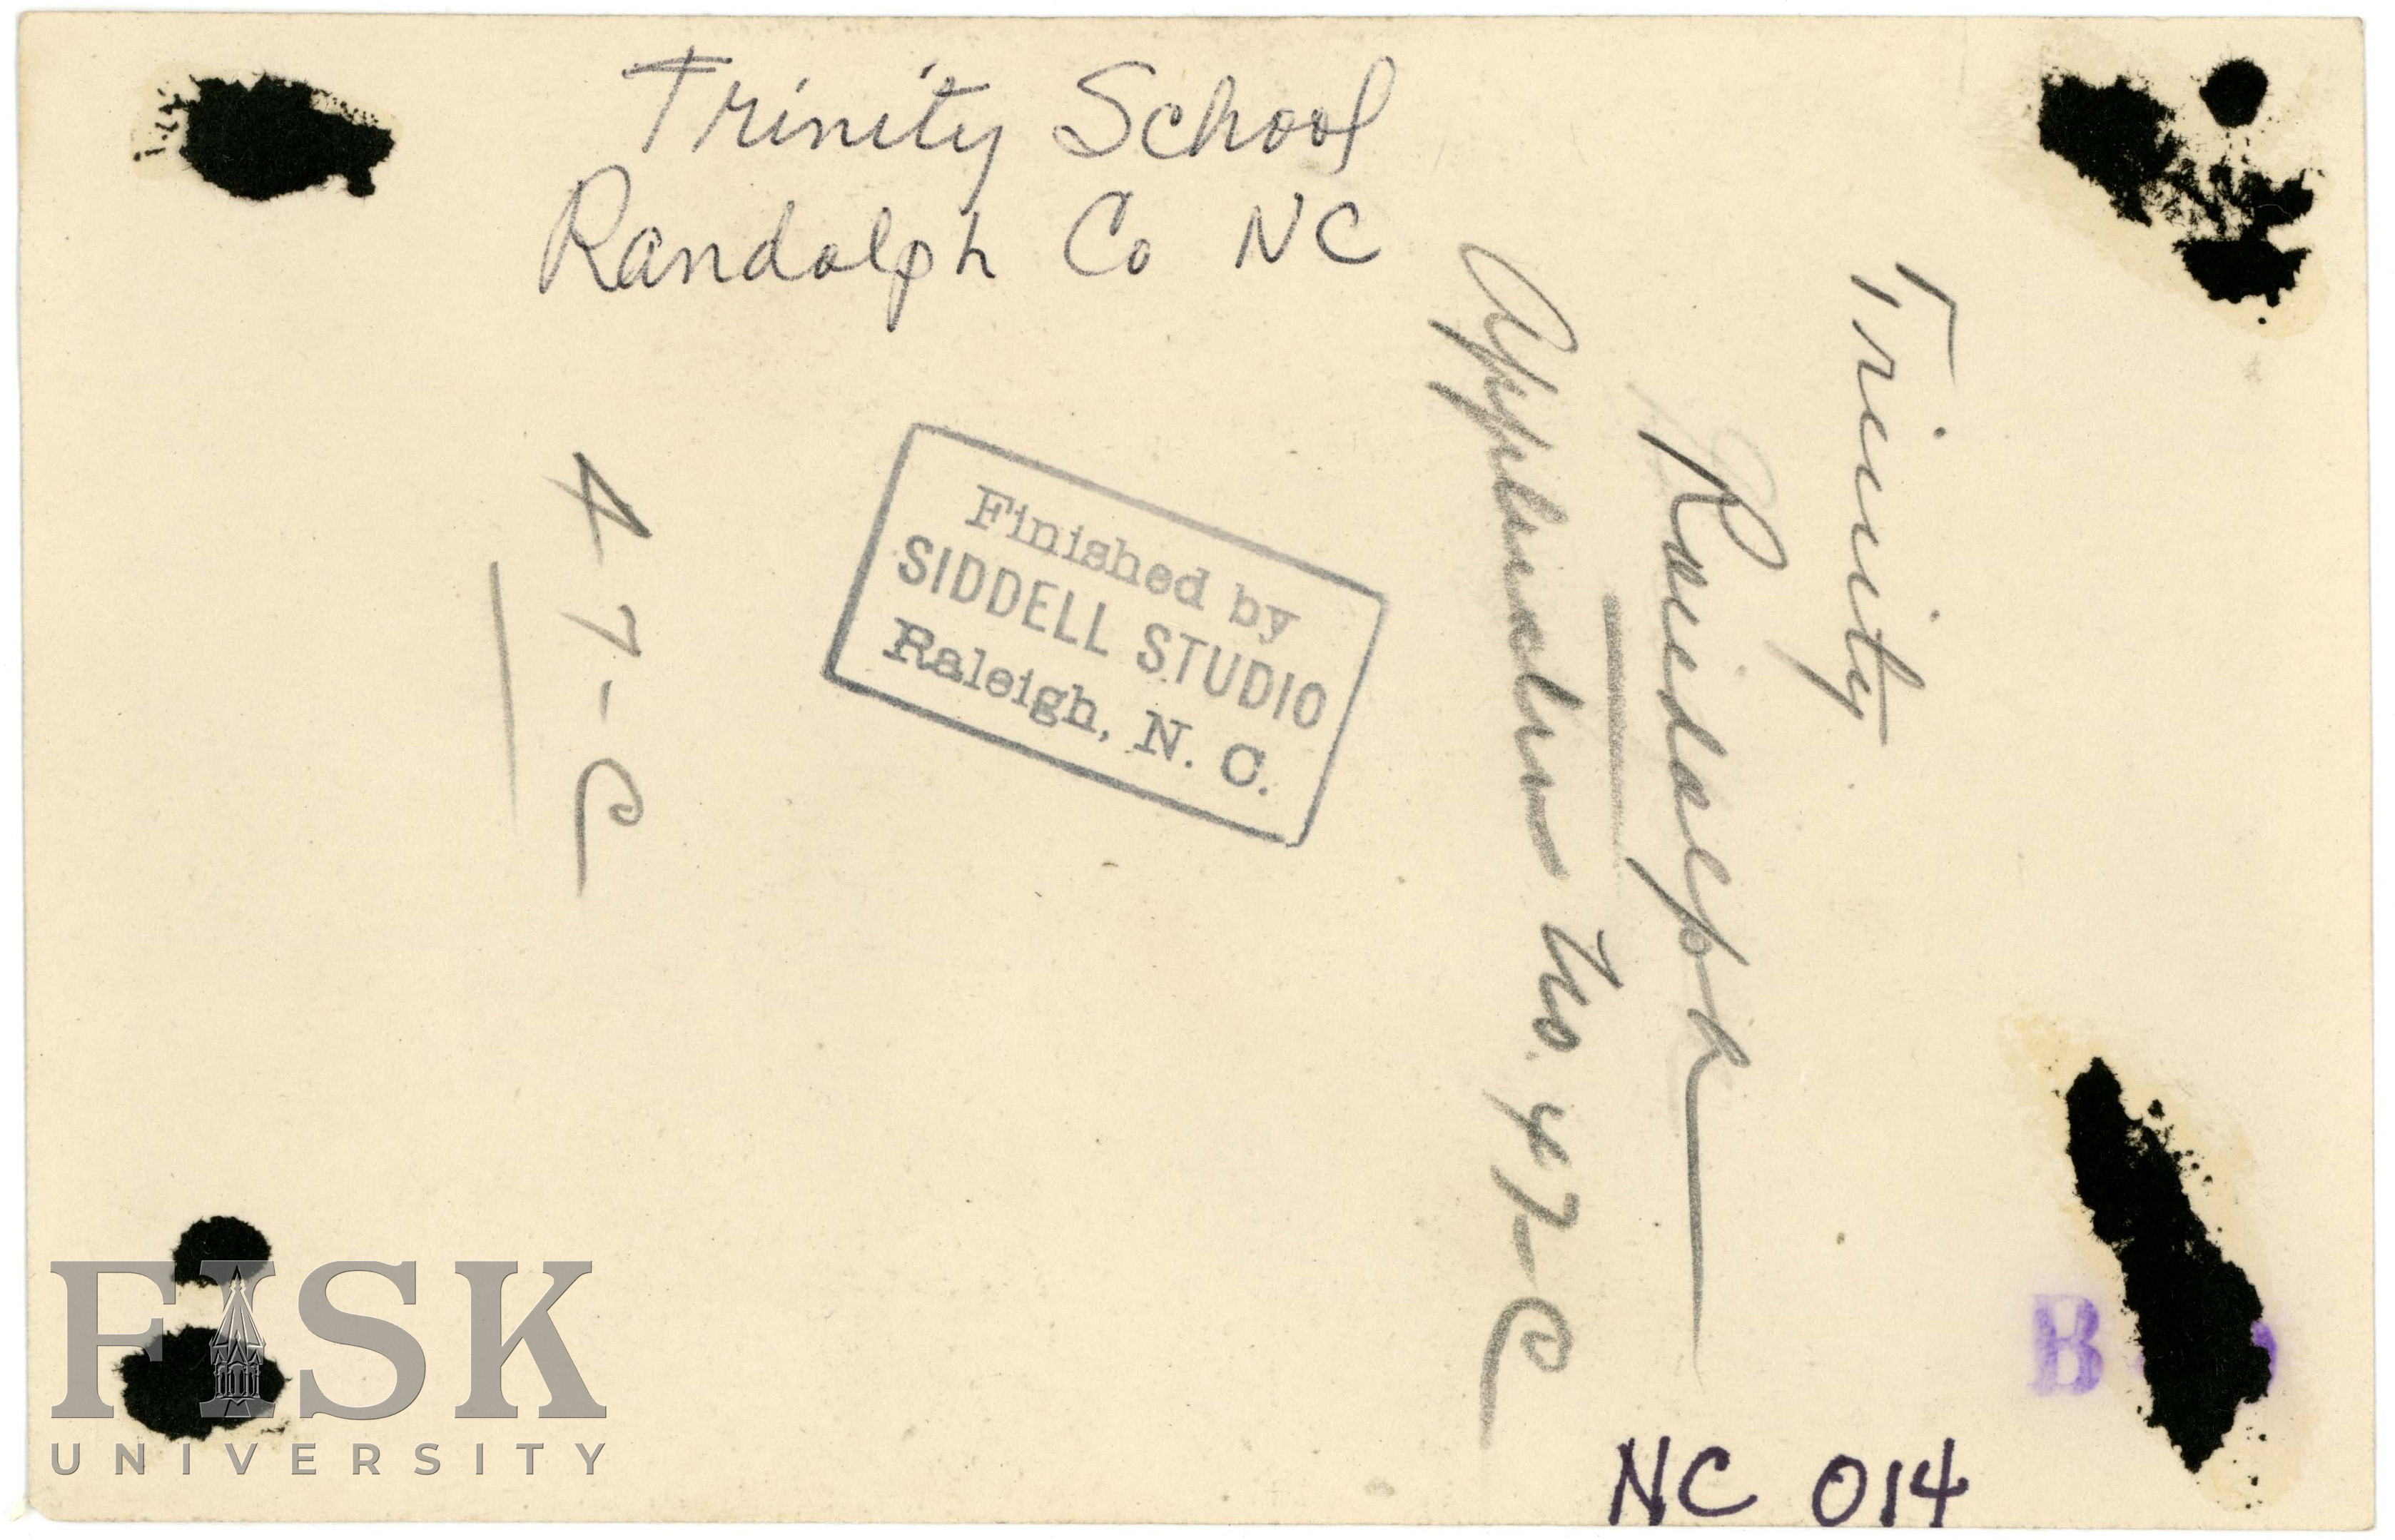 Trinity School
Randolph Co NC
Trinity
Randolph
Application No. 47-C
47-C
Finished by
SIDDELL STUDIO
Raleigh, N. C.
B
NC 014
FISK
UNIVERSITY